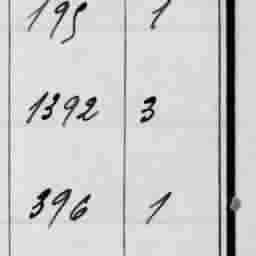 195 1
1392 3
396 1